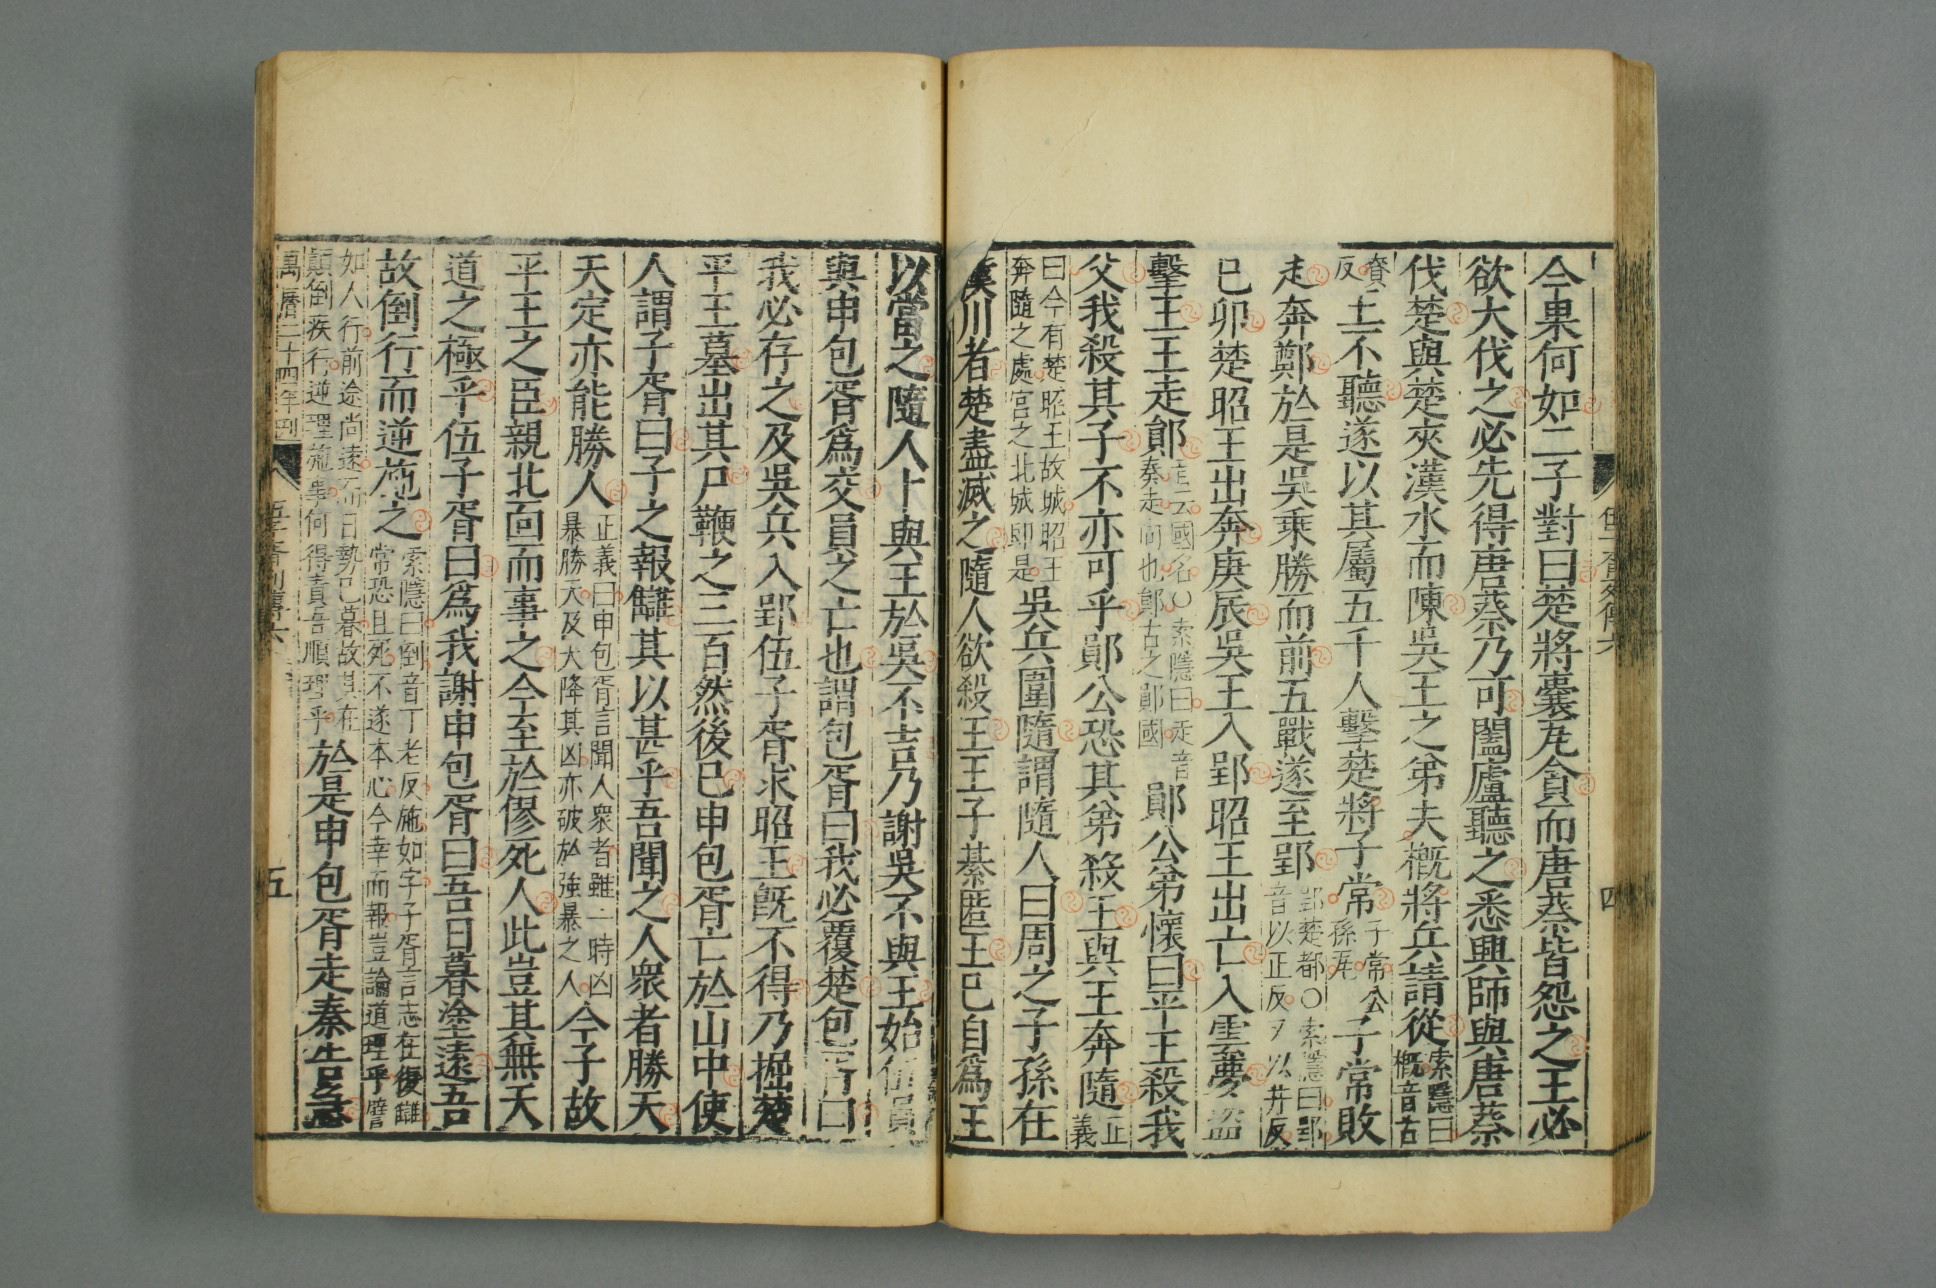 伍子胥列傳六
四
今果何如二子對曰楚將囊瓦貪而唐蔡皆怨之王必
欲大伐之必先得唐蔡乃可闔廬聽之悉興師與唐蔡
伐楚與楚夾漢水而陳吳王之弟夫槩將兵請從索隱曰槩音古
賚反王不聽遂以其屬五千人擊楚將子常子常公孫瓦子常敗
走奔鄭於是吳乘勝而前五戰遂至郢郢楚都○索隱曰郢音以正反又以井反
己卯楚昭王出奔庚辰吳王入郢昭王出亡入雲夢盜
擊王王走鄖走云國名○索隱曰走音奏走向也鄖古之鄖國鄖公弟懷曰平王殺我
父我殺其子不亦可乎鄖公恐其弟殺王與王奔隨正義
曰今有楚昭王故城昭王奔隨之處宮之北城即是吳兵圍隨謂隨人曰周之子孫在
漢川者楚盡滅之隨人欲殺王王子綦匿王己自爲王
以當之隨人卜與王於吳不吉乃謝吳不與王始伍員
與申包胥爲交員之亡也謂包胥曰我必覆楚包胥曰
我必存之及吳兵入郢伍子胥求昭王旣不得乃掘楚
平王墓出其尸鞭之三百然後已申包胥亡於山中使
人謂子胥曰子之報讎其以甚乎吾聞之人衆者勝天
天定亦能勝人正義曰申包胥言聞人衆者雖一時凶暴勝天及天降其凶亦破於強暴之人今子故
平王之臣親北面而事之今至於僇死人此豈其無天
道之極乎伍子胥曰爲我謝申包胥曰吾日暮塗遠吾
故倒行而逆施之索隱曰倒音丁老反施如字子胥言志在復讎常恐且死不遂本心今幸而報豈論道理乎譬
如人行前途尚遠而日勢已暮故其在顛倒疾行逆理施事何得責吾順理乎於是申包胥走秦告急
萬曆二十四年刊
伍子胥列傳六
五